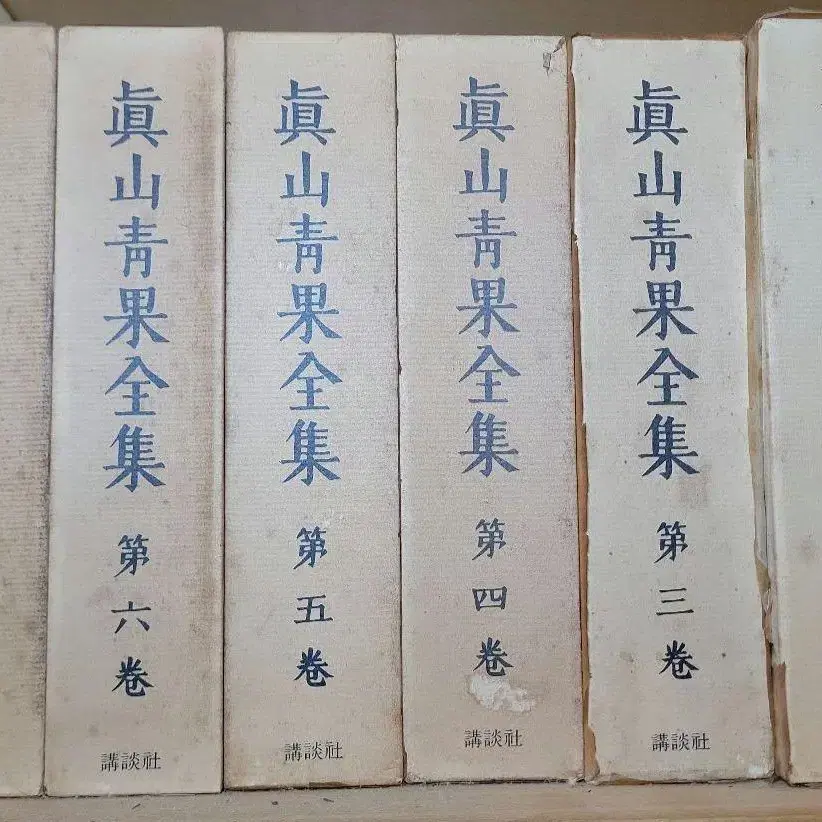 眞山青果全集 第六卷 講談社
眞山青果全集 第五卷 講談社
眞山青果全集 第四卷 講談社
眞山青果全集 第三卷 講談社